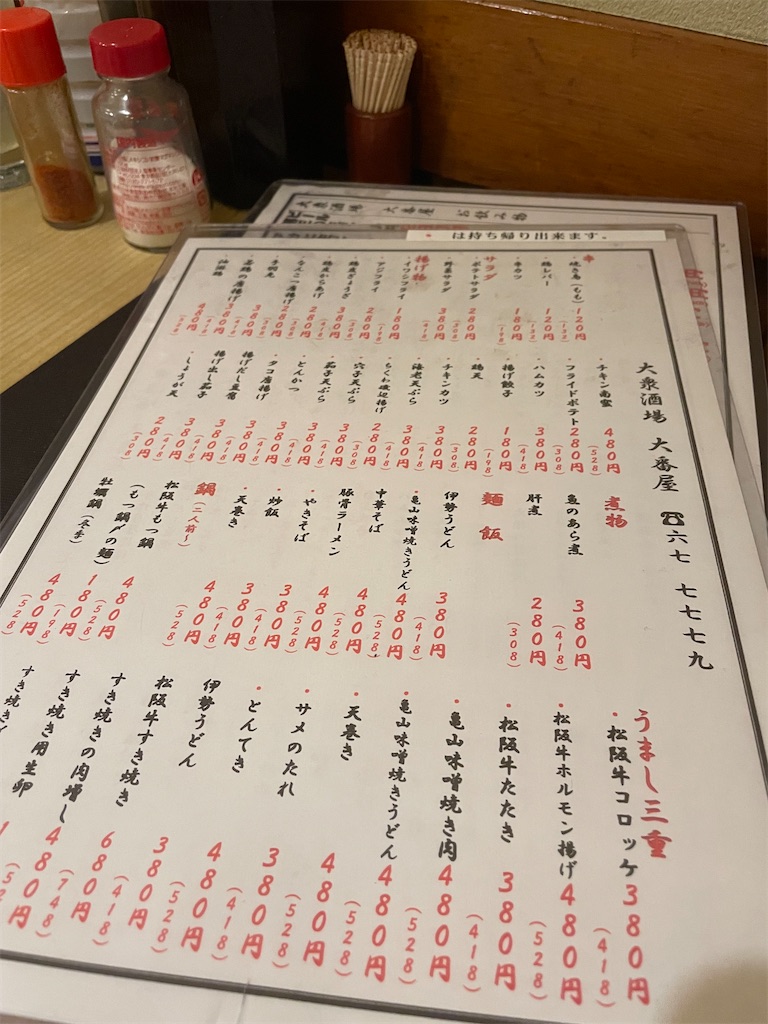 大衆酒場 大番屋 お飲み物
・は持ち帰り出来ます。
大衆酒場 大番屋 ☎六七 七七七九
串
・焼き鳥(もも) 120円 (132)
・鶏レバー 120円 (132)
・串カツ 180円 (198)
サラダ
・ポテトサラダ 280円 (308)
・野菜サラダ 380円 (418)
揚げ物
・イワシフライ 180円
・アジフライ 280円
・鶏皮ぎょうざ
・鶏皮からあげ
・なんこつ唐揚げ
・手羽先
・若鶏の唐揚げ
油淋鶏 480円 (528)
・チキン南蛮 480円 (528)
・フライドポテト 280円 (308)
・ハムカツ 380円 (418)
・揚げ餃子 180円 (198)
・鶏天 280円 (308)
・チキンカツ 380円 (418)
・海老天ぷら 380円 (418)
・ちくわ磯辺揚げ 280円 (308)
・穴子天ぷら 380円 (418)
・茄子天ぷら 380円 (418)
・とんかつ 380円 (418)
・タコ唐揚げ 380円 (418)
揚げだし豆腐 380円 (418)
揚げ出し茄子 380円 (418)
・しょうが天 280円 (308)
煮物
魚のあら煮 380円 (418)
肝煮 280円 (308)
麺 飯
伊勢うどん 380円 (418)
・亀山味噌焼きうどん 480円 (528)
中華そば 480円 (528)
豚骨ラーメン 480円 (528)
・やきそば 480円 (528)
・炒飯 380円 (418)
・天巻き 380円 (418)
鍋 (二人前〜)
松阪牛もつ鍋 480円 (528)
(もつ鍋〆の麺) 180円 (198)
牡蠣鍋(冬季) 480円 (528)
うまし三重
・松阪牛コロッケ 380円 (418)
・松阪牛ホルモン揚げ 480円 (528)
・松阪牛たたき 380円 (418)
・亀山味噌焼き肉 480円 (528)
・亀山味噌焼きうどん 480円 (528)
・天巻き 480円 (528)
・サメのたれ 380円 (418)
・とんてき 480円 (528)
伊勢うどん 380円 (418)
松阪牛すき焼き 680円 (748)
すき焼きの肉増し 480円
すき焼き用生卵
すき焼き